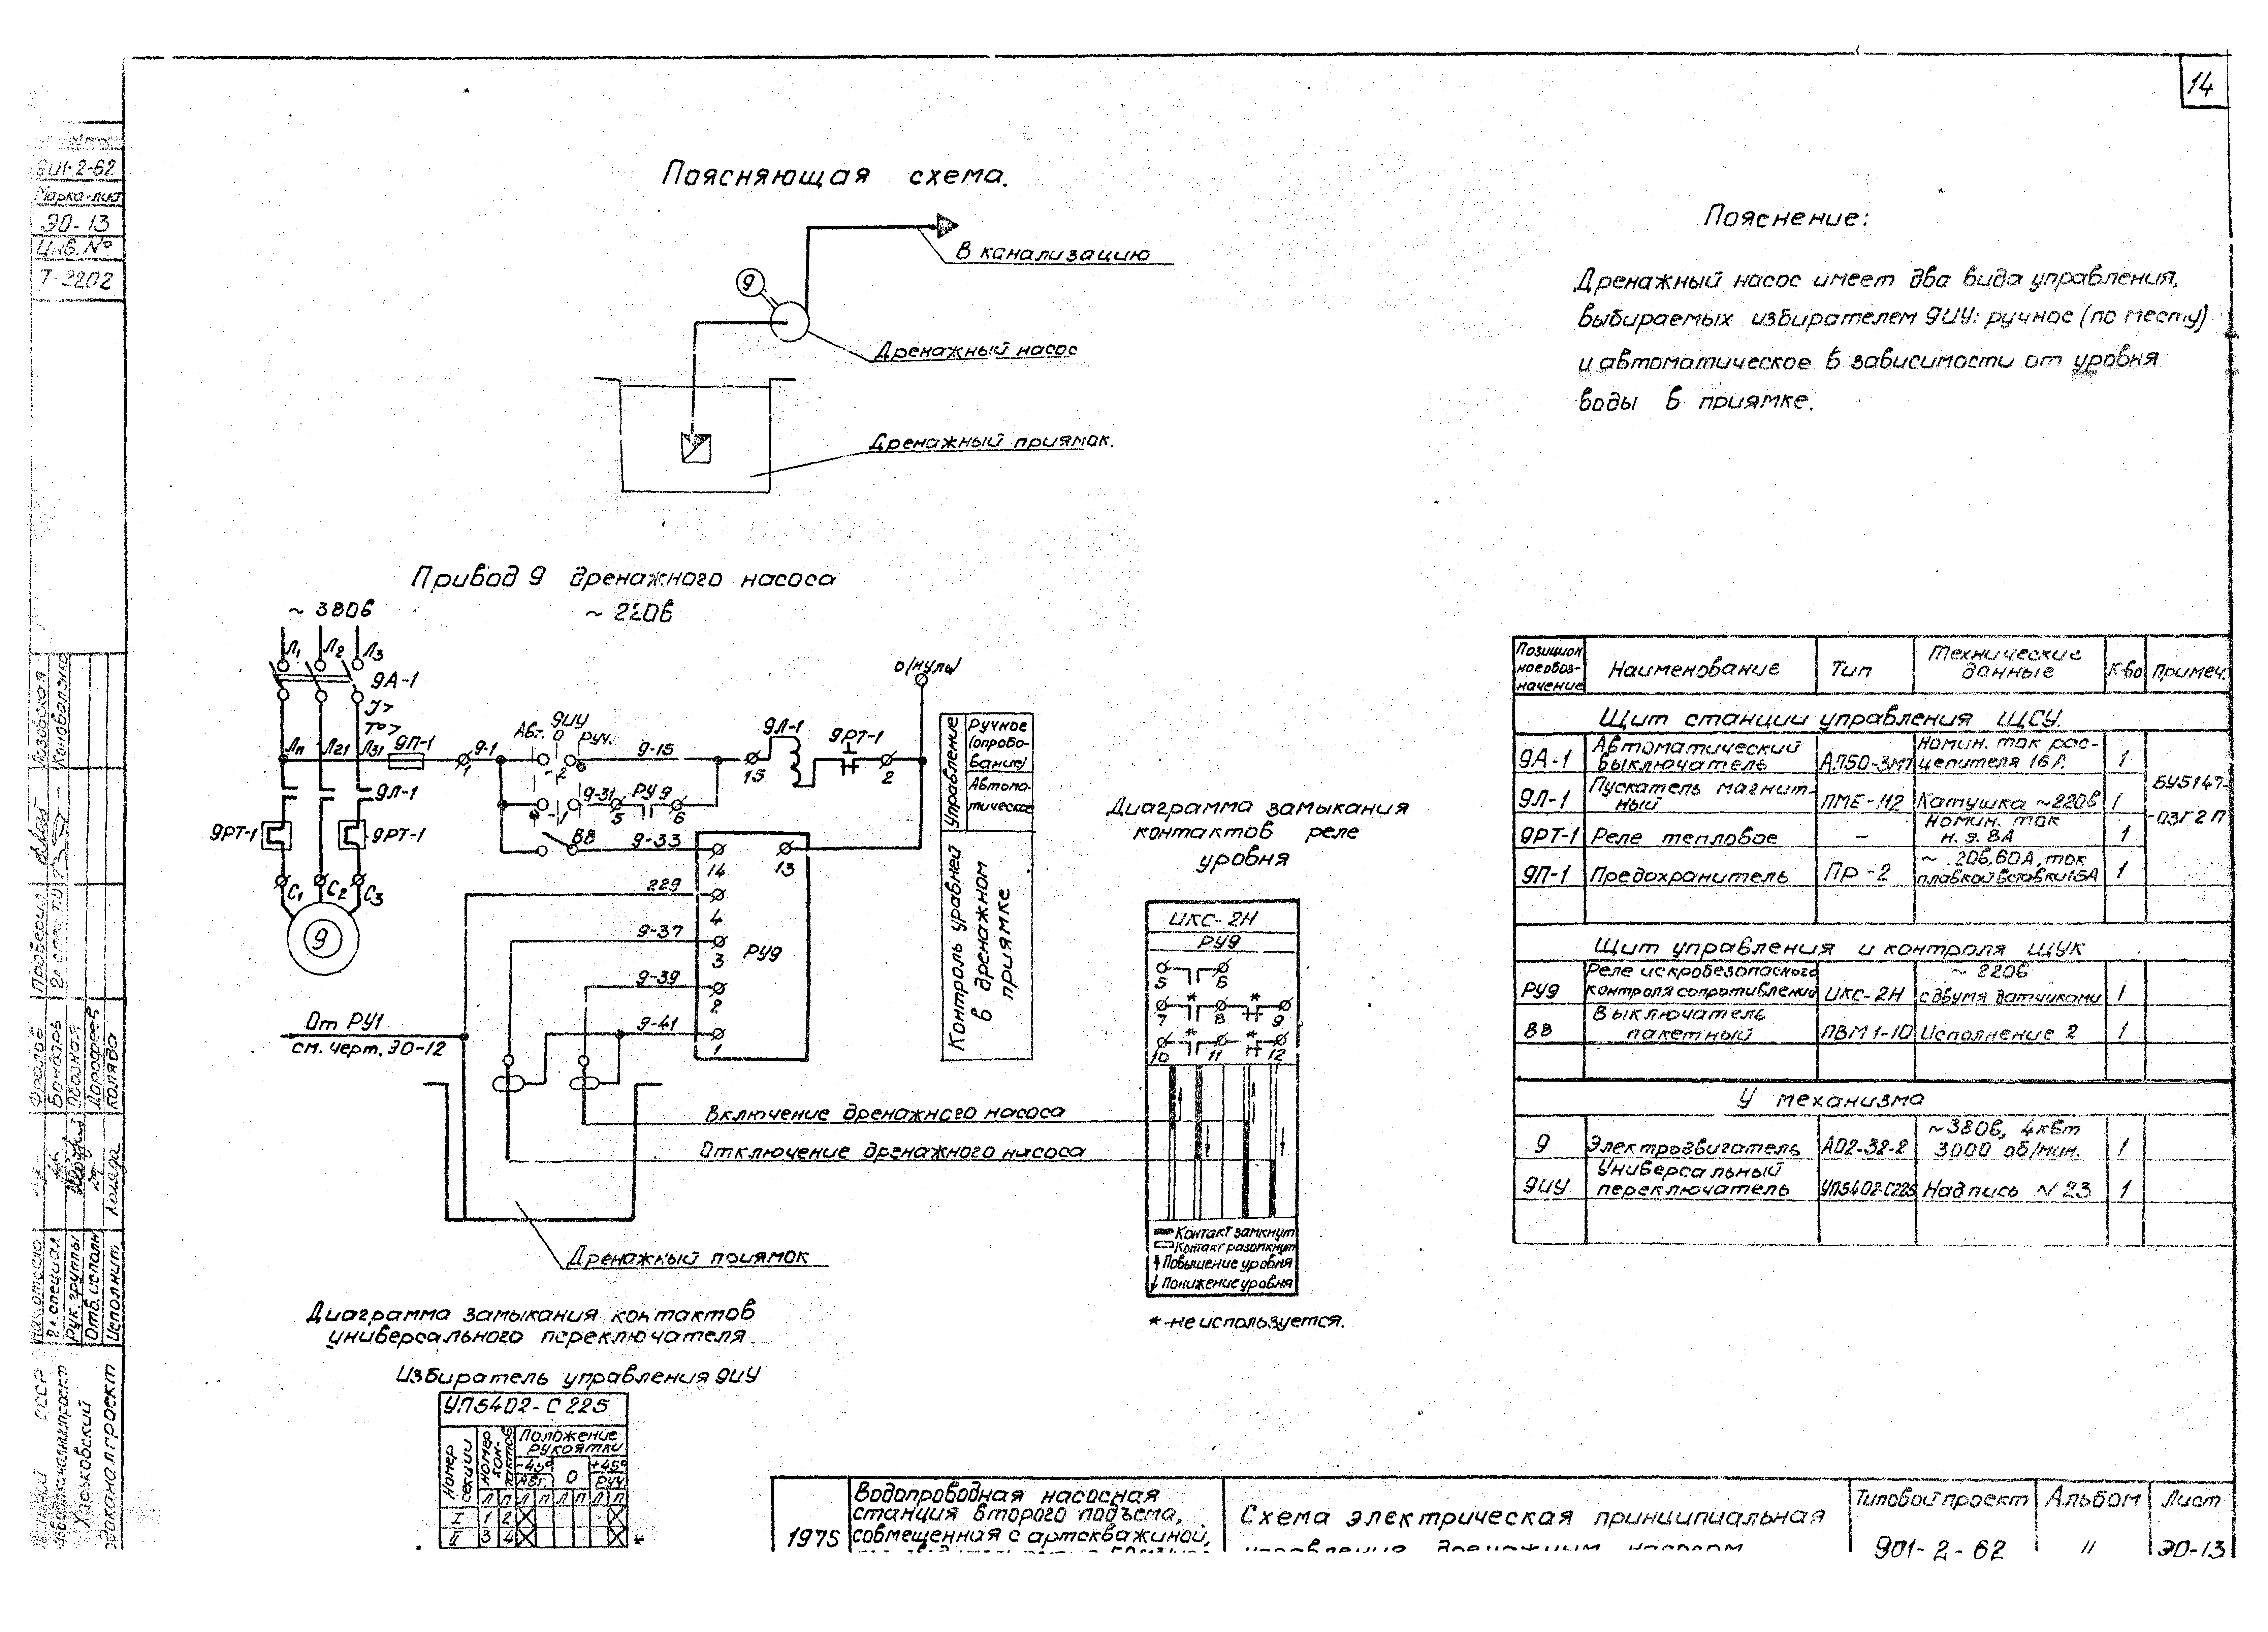 14
901-2-62
Марка-лист
ЭО-13
Инв. №
Т-2202
Поясняющая схема.
В канализацию
9
Дренажный насос
Дренажный приямок.
Пояснение:
Дренажный насос имеет два вида управления,
выбираемых избирателем 9ИУ: ручное (по месту)
и автоматическое в зависимости от уровня
воды в приямке.
Привод 9 дренажного насоса
~ 380в
~ 220в
Л1 Л2 Л3
9А-1
I>
T°>
Л11 Л21 Л31 9П-1 9-1
1
9ИУ
Авт. 0 Руч.
2
9-15
15
9Л-1
9РТ-1
2
0 (нуль)
9Л-1
9РТ-1
9РТ-1
1
9-31
5
РУ9
6
ВВ
9-33
14
13
229
4
9-37
3
РУ9
9-39
2
9-41
1
С1 С2 С3
9
От РУ1
см. черт. ЭО-12
Управление
Ручное
(опробо-
вание)
Автома-
тическое
Контроль уравней
в дренажном
приямке
Включение дренажнсго насоса
Отключение дренажного насоса
Дренажный приямок
Диаграмма замыкания
контактов реле
уровня
ИКС-2Н
РУ9
5 6
* *
7 8 9
* *
10 11 12
Контакт замкнут
Контакт разомкнут
↑ Повышение уровня
↓ Понижение уровня
*-не используется.
Диаграмма замыкания контактов
универсального переключателя.
Избиратель управления 9ИУ
УП5402-С225
Номер секции
Номер контактов
Положение
рукоятки
-45° 0 +45°
Авт. Руч
Л П Л П Л П Л П
I 1 2
II 3 4 *
Позицион
ное обоз-
начение
Наименование
Тип
Технические
данные
К-во
Примеч.
Щит станции управления ЩСУ.
9А-1 Автоматический выключатель АП50-3МТ Номин. ток рас-цепителя 16А. 1
9Л-1 Пускатель магнит-ный ПМЕ-112 Катушка ~220в 1
БУ5147-
-03Г2П
9РТ-1 Реле тепловое – Номин. ток н.э. 8А 1
9П-1 Предохранитель Пр-2 60А, ток плавкой вставки 1
Щит управления и контроля ЩУК
РУ9 Реле искробезопасного контроля сопротивлений ИКС-2Н ~ 220в с двумя датчиками 1
ВВ Выключатель пакетный ПВМ1-10 Исполнение 2 1
У механизма
9 Электрозвигатель АО2-32-2 ~380в, 4квт 3000 об/мин. 1
9ИУ Универсальный переключатель УП5402-С225 Надпись N 23 1
1975
Водопроводная насосная
станция второго подъема,
совмещенная с артскважиной,
Схема электрическая принципиальная
управления дренажным насосом
Типовой проект
901-2-62
Альбом
II
Лист
ЭО-13
Лозовская
Коноваленко
Проверил
Фролов
Бондарь
Дорофеев
Коляда
Гл. специал.
Рук. группы
Отв. исполн
Исполнит.
СССР
Харьковский